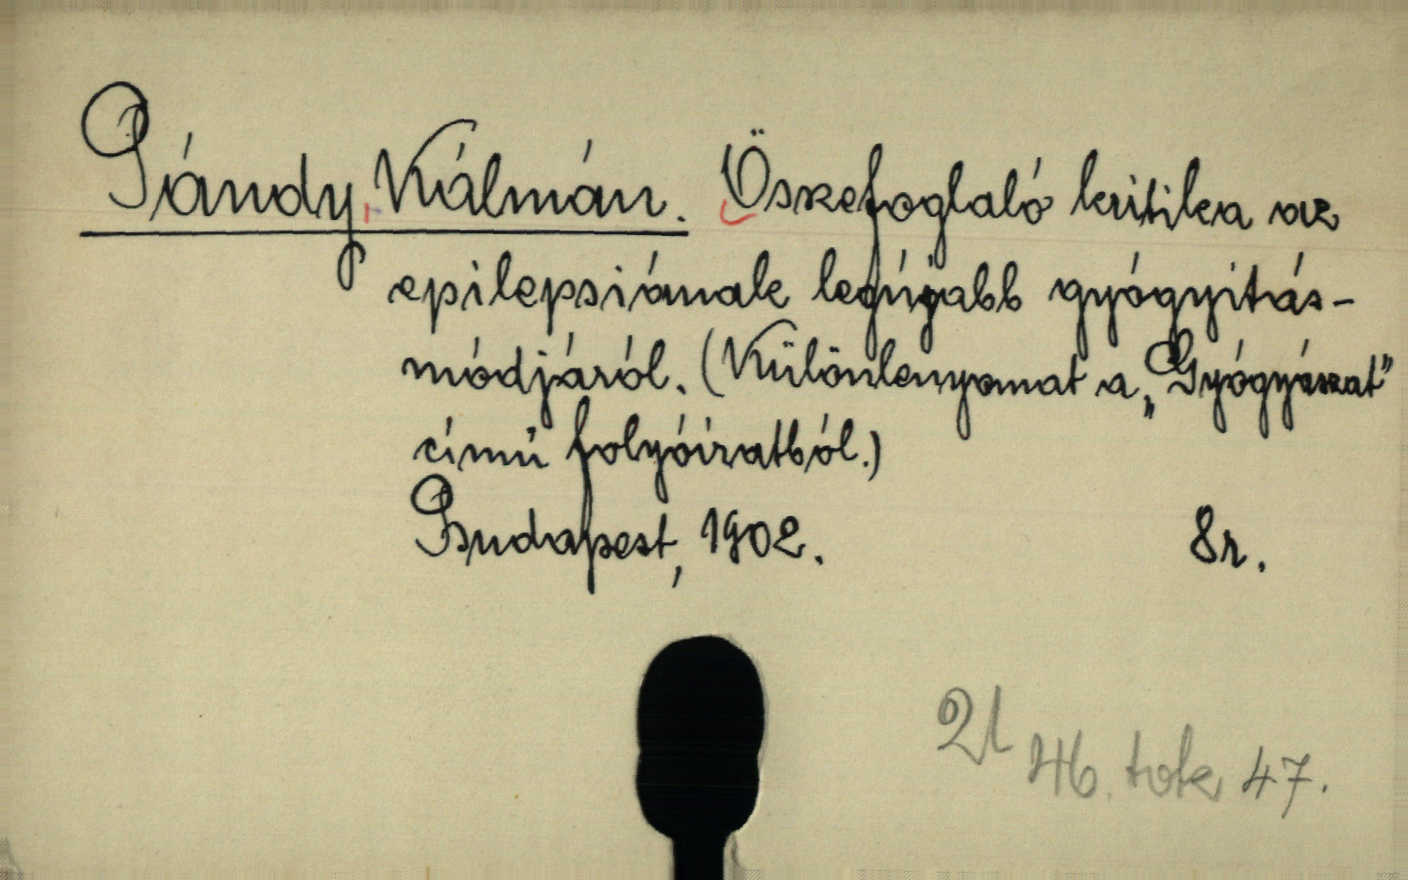 Pándy, Kálmán. Összefoglaló kritika az
epilepsiának legújabb gyógyitás-
módjáról. (Különlenyomat a „Gyógyászat"
című folyóiratból.)
Budapest, 1902. 8r.
46. tok 47.